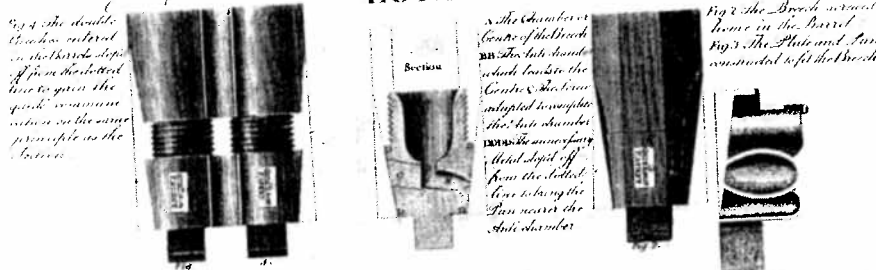 Fig 4 The double
Breeches entered
in the Barrels sloped
off from the dotted
line to gain the
quick communi
cation on the same
principle as the
Section
A The Chamber or
Centre of the Breech
BB The Anti chamber
which leads to the
Centre C The Screw
adapted to complete
the Anti chamber
DDDD The unnecessary
Metal sloped off
from the dotted
line to bring the
Pan nearer the
Anti chamber
Fig 2 The Breech screwed
home in the Barrel
Fig 3 The Plate and Pan
constructed to fit the Breech
Fig
4.
Fig 2.